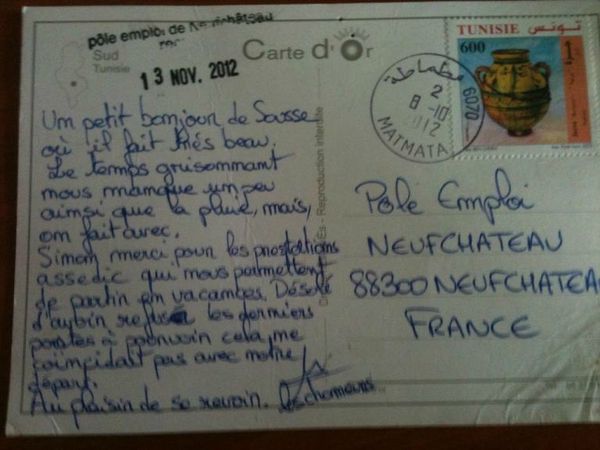 pôle emploi de Neufchâteau
13 NOV. 2012
Sud
Tunisie
Carte d'Or
TUNISIE تونس
600
مطماطة
6070
2
8-10
2012
MATMATA
Reproduction interdite
Un petit bonjour de Sousse
où il fait très beau.
Le temps grisonnant
nous manque un peu
ainsi que la pluie, mais,
on fait avec.
Sinon merci pour les prestations
assedic qui nous permettent
de partir en vacances. Désolé
d'avoir refusé les derniers
postes à pourvoir cela ne
coïncidait pas avec notre
départ.
Au plaisir de se revoir.
les chomeurs
Pôle Emploi
NEUFCHATEAU
88300 NEUFCHATEA
FRANCE